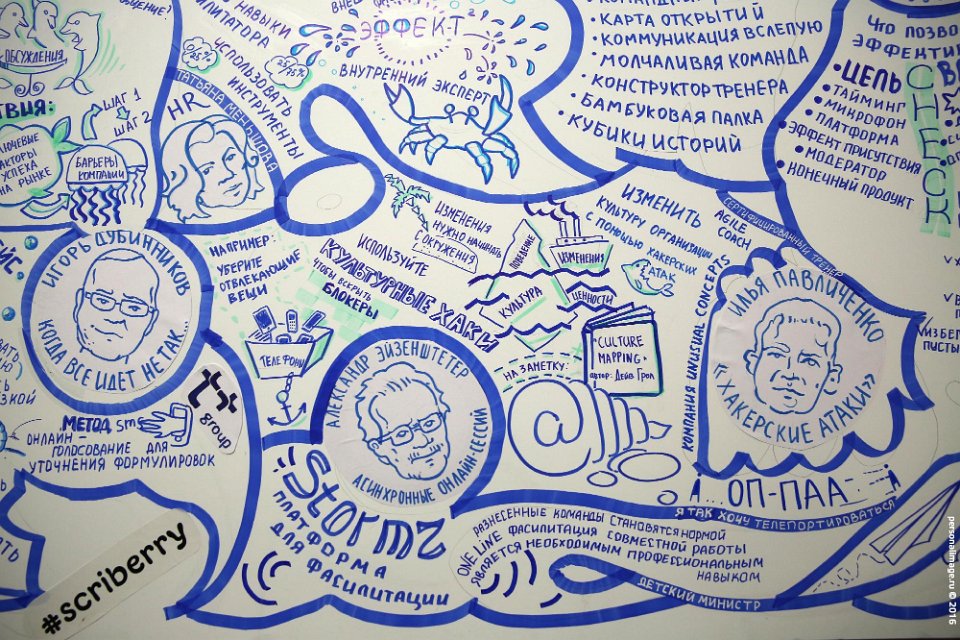 ОБСУЖДЕНИЯ
ШАГ 1
ШАГ 2
УСПЕХА
НА РЫНКЕ
БАРЬЕРЫ
КОМПАНИИ
НАВЫКИ
ИСПОЛЬЗОВАТЬ
ИНСТРУМЕНТЫ
25%
75%
HR
ТАТЬЯНА МЕНЬШОВА
ЭФФЕКТ
ВНУТРЕННИЙ ЭКСПЕРТ
• КАРТА ОТКРЫТИЙ
• КОММУНИКАЦИЯ ВСЛЕПУЮ
МОЛЧАЛИВАЯ КОМАНДА
• КОНСТРУКТОР ТРЕНЕРА
• БАМБУКОВАЯ ПАЛКА
• КУБИКИ ИСТОРИЙ
• ЦЕЛЬ
• ТАЙМИНГ
• МИКРОФОН
• ПЛАТФОРМА
• ЭФФЕКТ ПРИСУТСТВИЯ
• МОДЕРАТОР
• КОНЕЧНЫЙ ПРОДУКТ
ИГОРЬ ДУБИННИКОВ
КОГДА ВСЕ ИДЕТ НЕ ТАК...
НАПРИМЕР:
УБЕРИТЕ
ОТВЛЕКАЮЩИЕ
ВЕЩИ
ТЕЛЕФОНЫ
ИСПОЛЬЗУЙТЕ
КУЛЬТУРНЫЕ ХАКИ
ЧТОБЫ ВСКРЫТЬ
БЛОКЕРЫ
ИЗМЕНЕНИЯ
НУЖНО НАЧИНАТЬ
С ОКРУЖЕНИЯ
ПОВЕДЕНИЕ
ИЗМЕНЕНИЯ
КУЛЬТУРА
ЦЕННОСТИ
ИЗМЕНИТЬ
КУЛЬТУРУ ОРГАНИЗАЦИИ
С ПОМОЩЬЮ ХАКЕРСКИХ
АТАК
СЕРТИФИЦИРОВАННЫЙ ТРЕНЕР
AGILE
COACH
КОМПАНИЯ UNUSUAL CONCEPTS
ИЛЬЯ ПАВЛИЧЕНКО
«ХАКЕРСКИЕ АТАКИ»
НА ЗАМЕТКУ:
"CULTURE
MAPPING"
автор: Дейв Грей
@
МЕТОД sms
ОНЛАЙН –
ГОЛОСОВАНИЕ ДЛЯ
УТОЧНЕНИЯ ФОРМУЛИРОВОК
group
АЛЕКСАНДР ЭЙЗЕНШТЕТЕР
АСИНХРОННЫЕ ОНЛАЙН-СЕССИИ
Stormz
ПЛАТФОРМА
ДЛЯ
ФАСИЛИТАЦИИ
ОП-ПАА
Я ТАК ХОЧУ ТЕЛЕПОРТИРОВАТЬСЯ
РАЗНЕСЕННЫЕ КОМАНДЫ СТАНОВЯТСЯ НОРМОЙ
ONE LINE ФАСИЛИТАЦИЯ СОВМЕСТНОЙ РАБОТЫ
ЯВЛЯЕТСЯ НЕОБХОДИМЫМ ПРОФЕССИОНАЛЬНЫМ
НАВЫКОМ
ДЕТСКИЙ МИНИСТР
#scriberry
personalimage.ru © 2016